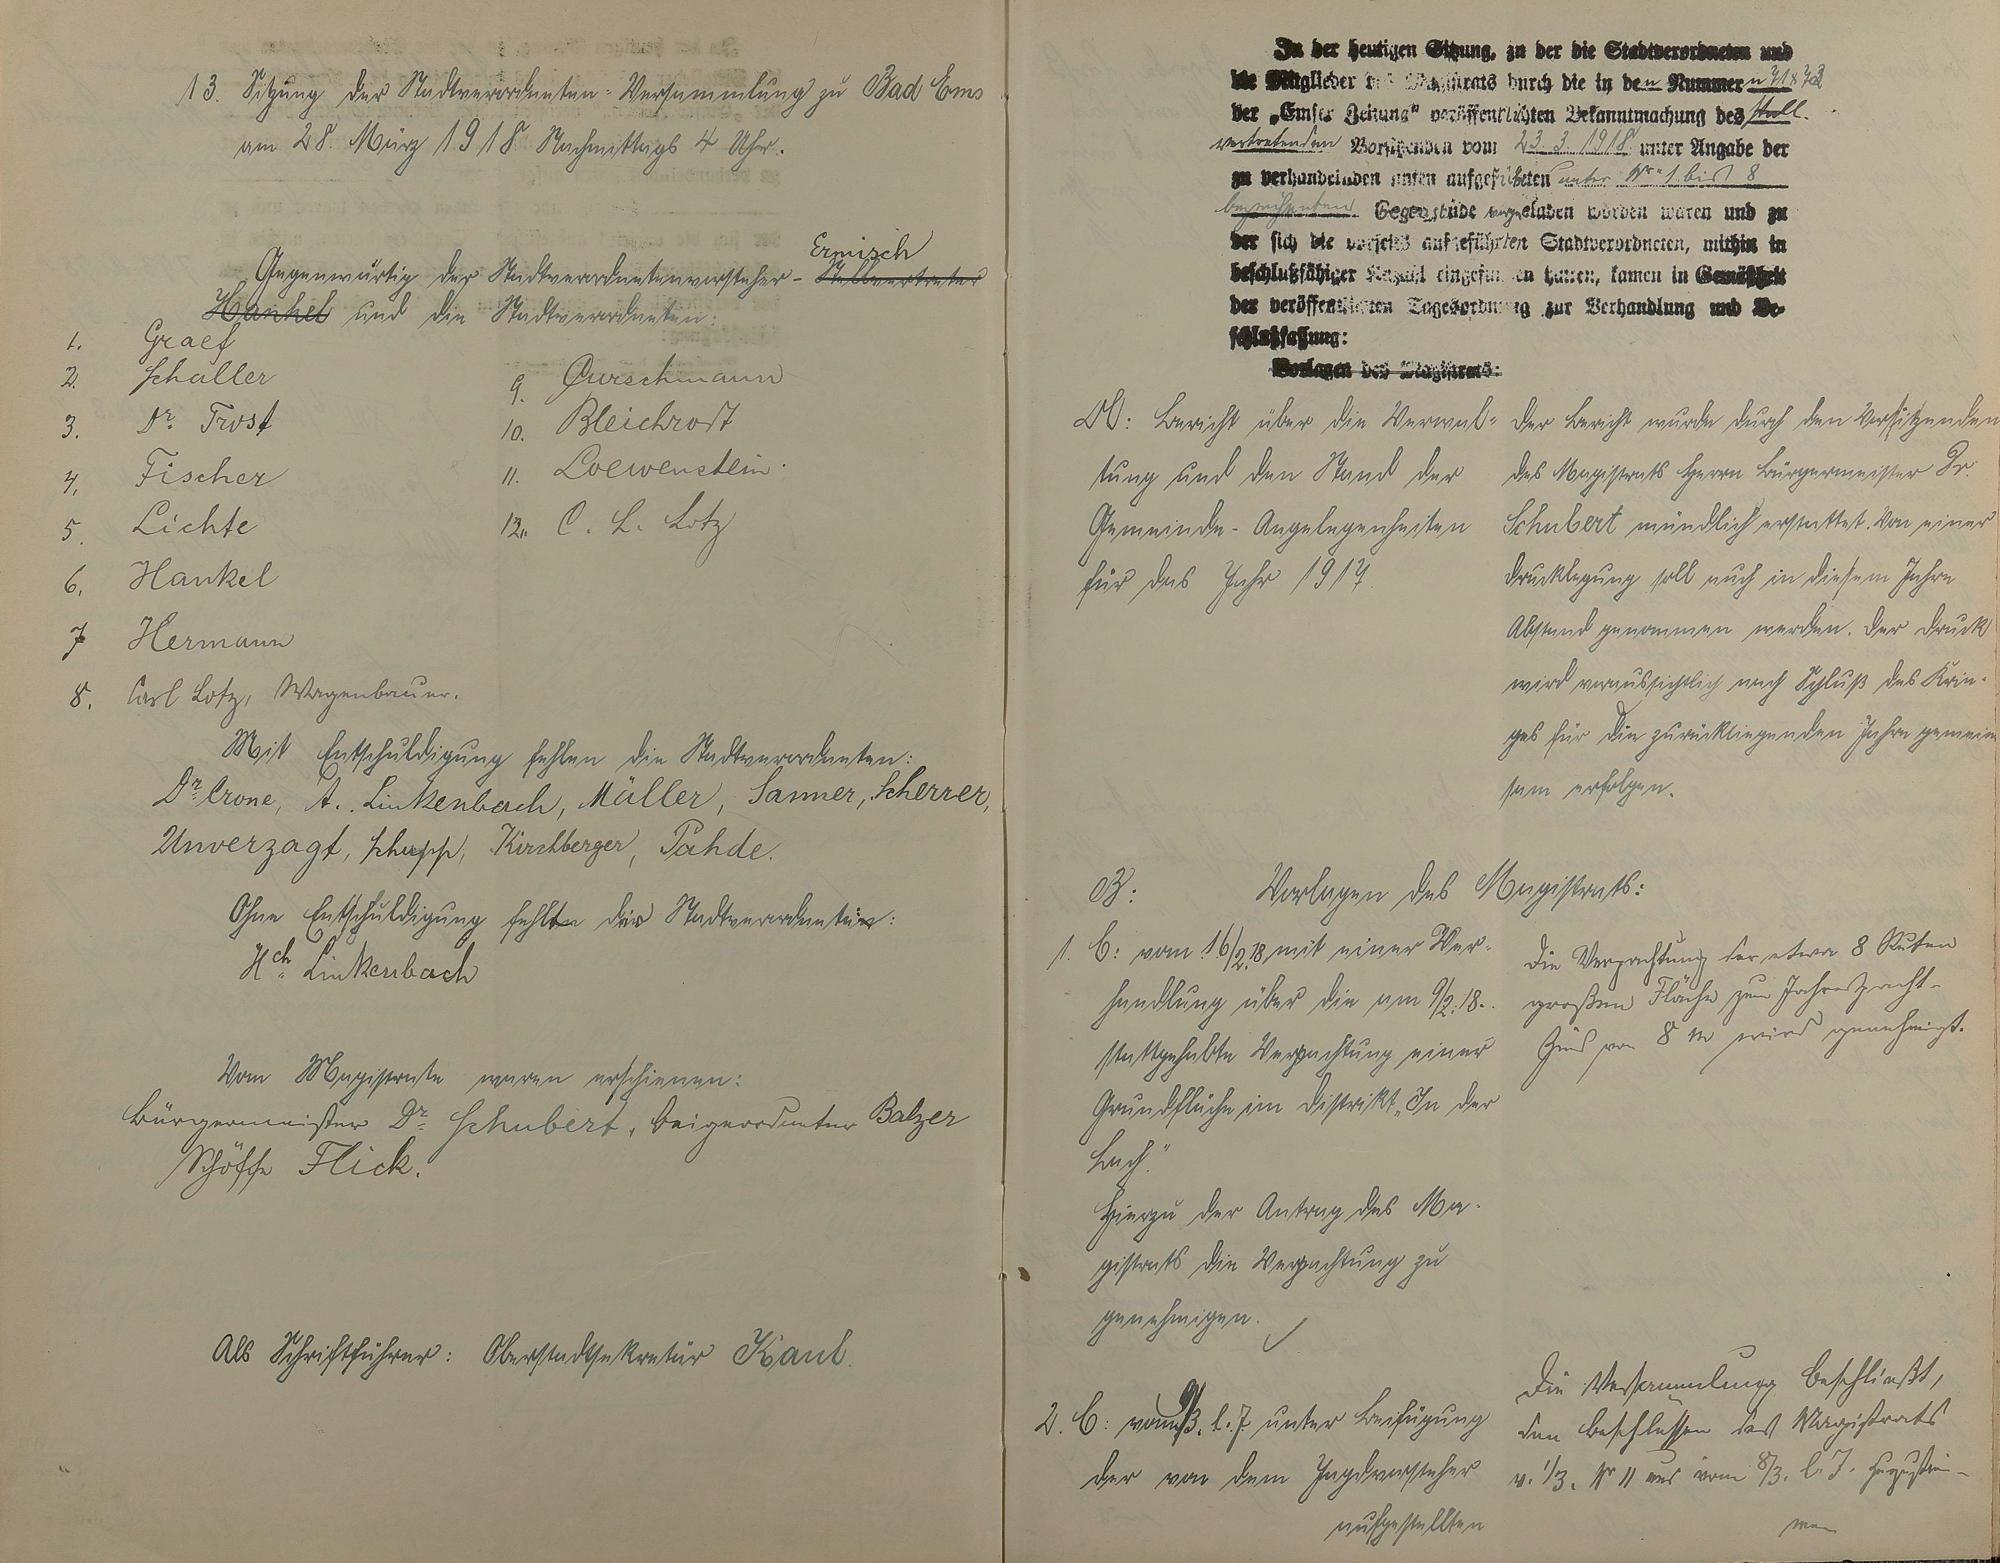 13. Sitzung der Stadtverordneten-Versammlung zu Bad Ems
am 28. März 1918 Nachmittags 4 Uhr.
Ermisch
Gegenwärtig der Stadtverordnetenvorsteher- Stellvertreter
Hankel und die Stadtverordneten:
1. Graef
2. Schaller
3. Dr. Trost
4. Fischer
5. Lichte
6. Hankel
7 Hermann
8. Carl Lotz, Wagenbauer.
9. Curschmann
10. Bleichrodt
11. Loewenstein.
12. C. L. Lotz
Mit Entschuldigung fehlen die Stadtverordneten:
Dr. Crone, A. Linkenbach, Müller, Sanner, Scherrer,
Unverzagt, Schupp, Kirschberger, Pahde.
Ohne Entschuldigung fehlte der Stadtverordnete:
Hch. Linkenbach
Vom Magistrate waren erschienen:
Bürgermeister Dr. Schubert, Beigeordneter Balzer
Schöffe Flick.
Als Schriftführer: Oberstadtsekretär Kaul.
In der heutigen Sitzung, zu der die Stadtverordneten und
die Mitglieder des Magistrats durch die in den Nummern 71 & 73
der „Emser Zeitung" veröffentlichten Bekanntmachung des stell.
vertretenden Vorsitzenden vom 23. 3. 1918 unter Angabe der
zu verhandelnden unten aufgeführten unter Nr. 1 bis 8
bezeichneten Gegenstände vorgeladen worden waren und zu
der sich die vorseits aufgeführten Stadtverordneten, mithin in
beschlußfähiger Anzahl eingefunden hatten, kamen in Gemäßheit
der veröffentlichten Tagesordnung zur Verhandlung und Be-
schlußfassung:
Vorlagen des Magistrats:
A: Bericht über die Verwal-
tung und den Stand der
Gemeinde-Angelegenheiten
für das Jahr 1917.
Der Bericht wurde durch den Vorsitzenden
des Magistrats Herrn Bürgermeister Dr.
Schubert mündlich erstattet. Von einer
Drucklegung soll auch in diesem Jahre
Abstand genommen werden. Der Druck
wird voraussichtlich nach Schluß des Krie-
ges für die zurückliegenden Jahre gemein
sam erfolgen.
B: Vorlagen des Magistrats:
1. B: vom 16/2.18 mit einer Ver-
handlung über die am 9/2.18.
stattgehabte Verpachtung einer
Grundfläche im Distrikt „In der
Bach."
Hierzu der Antrag des Ma-
gistrats die Verpachtung zu
genehmigen.
Die Verpachtung der etwa 8 Ruten
großen Fläche zum Jahrespacht-
Zins von 8 M wird genehmigt.
2. B: vom 9/3. l. J. unter Beifügung
der von dem Jagdvorsteher
aufgestellten
Die Versammlung beschließt,
den Beschlüssen des Magistrats
v. 1/3. Nr 11 und vom 8/3. l. J.